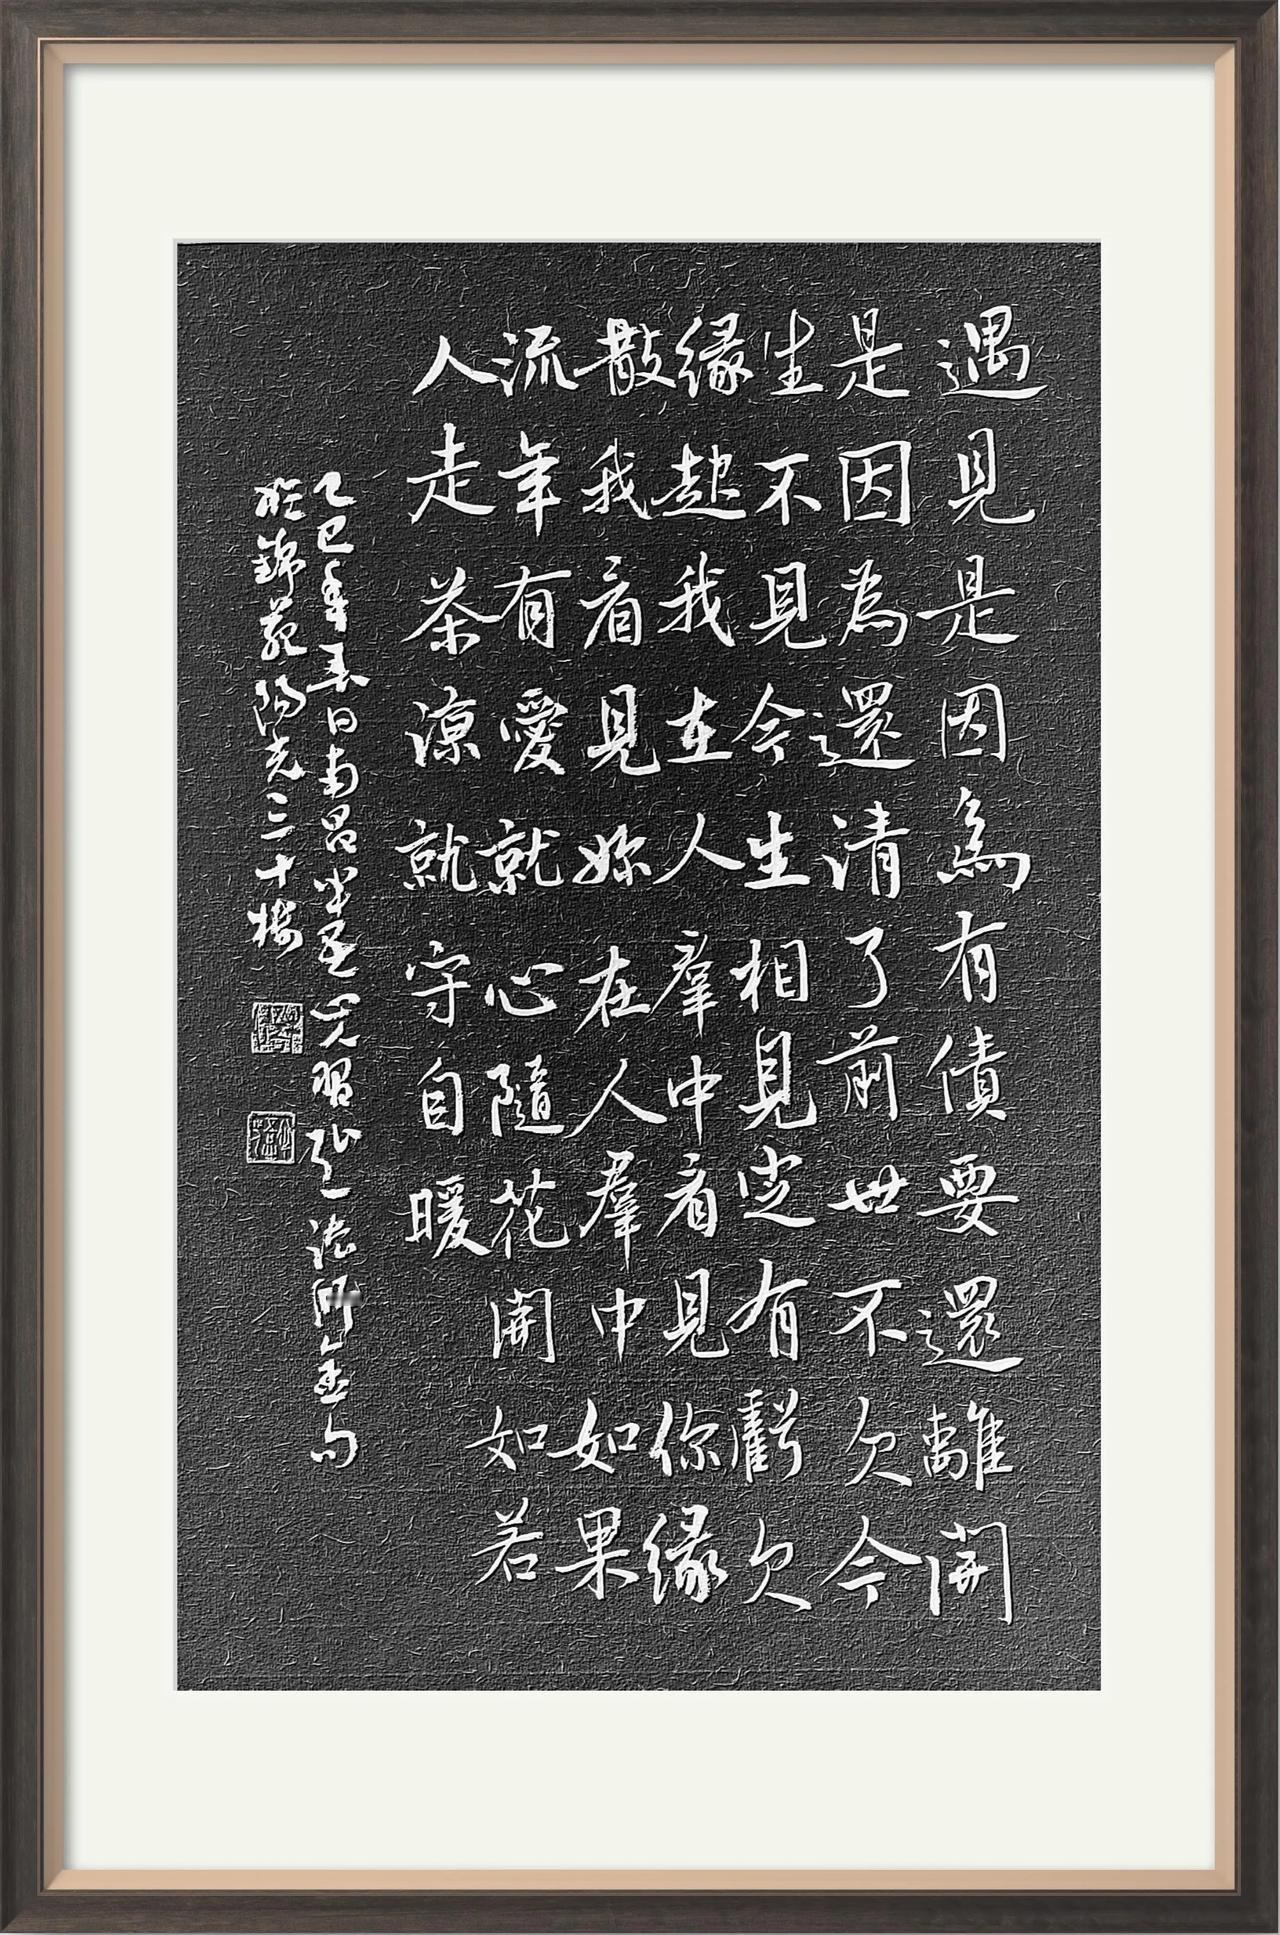 遇見是因為有債要還離開
是因為還清了前世不欠今
生不見今生相見定有虧欠
緣起我在人羣中看見你緣
散我看見妳在人羣中如果
流年有愛就心隨花開如若
人走茶涼就守自暖
乙巳年春日南昌半星心兄習弘一法師金句
於錦苑陽光三十樓